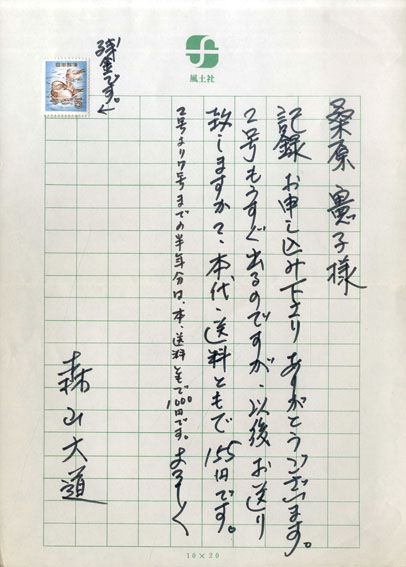 風土社
残金です。
桑原寛子様
記録 お申し込み下さりありがとうございます。
2号もうすぐ出るのですが、以後お送り
致しますかて、本代、送料ともで155円です。
2号より7号までの半年分は、本・送料ともで1000円です。よろしく
森山大道
10×20